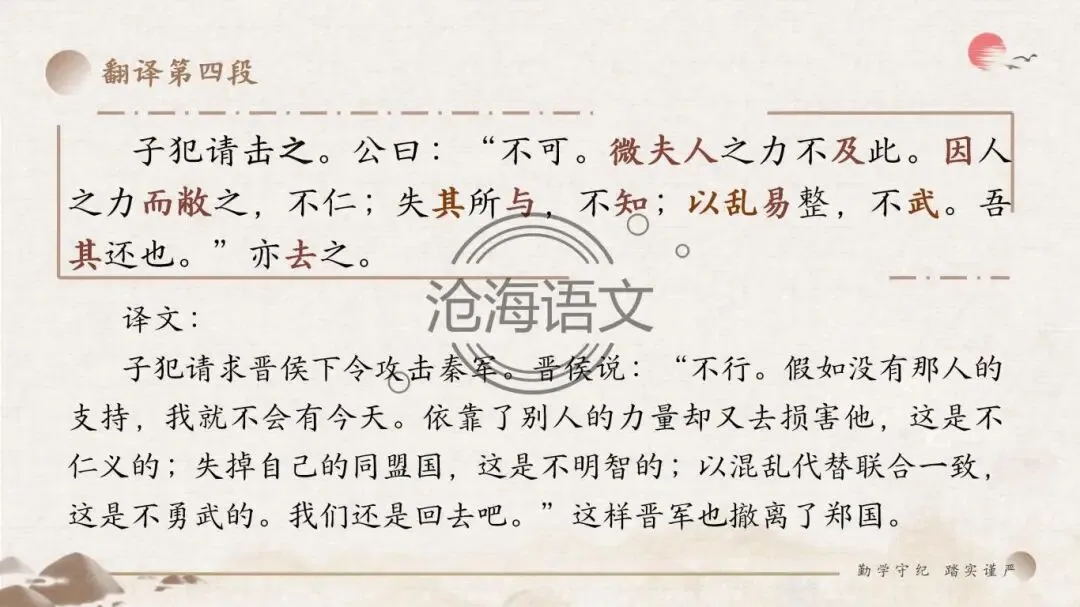 翻译第四段
子犯请击之。公曰：“不可。微夫人之力不及此。因人
之力而敝之，不仁；失其所与，不知；以乱易整，不武。吾
其还也。”亦去之。
沧海语文
译文：
子犯请求晋侯下令攻击秦军。晋侯说：“不行。假如没有那人的
支持，我就不会有今天。依靠了别人的力量却又去损害他，这是不
仁义的；失掉自己的同盟国，这是不明智的；以混乱代替联合一致，
这是不勇武的。我们还是回去吧。”这样晋军也撤离了郑国。
勤学守纪 踏实谨严